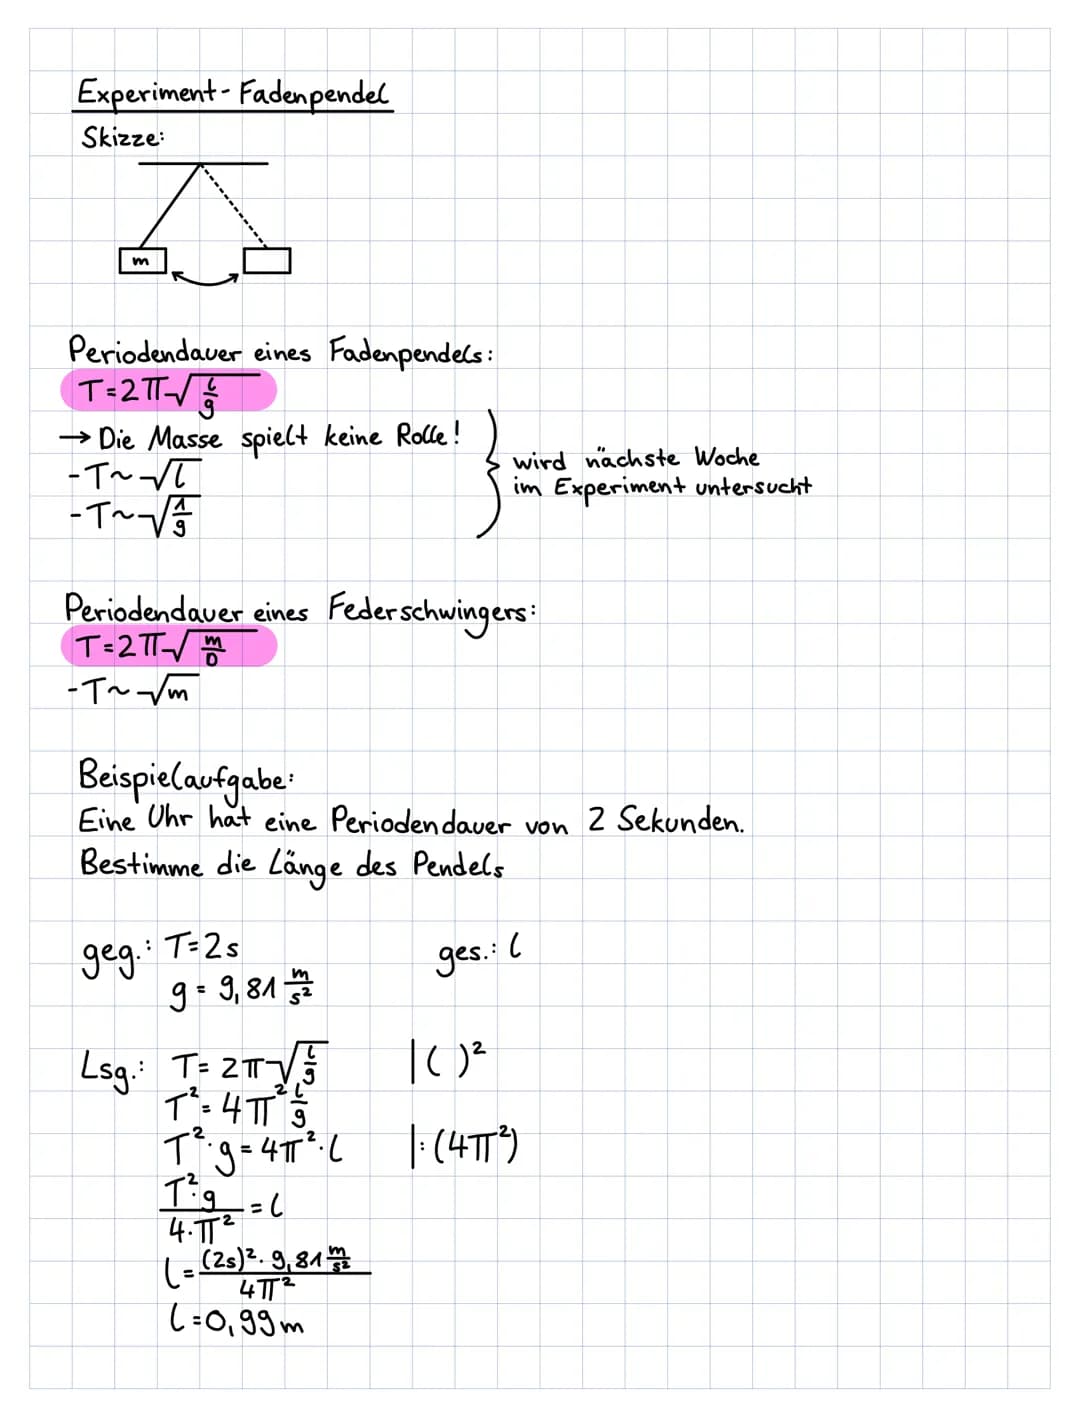 Experiment - Fadenpendel
Skizze:
m
Periodendauer eines Fadenpendels:
T=2π√(l/g)
→ Die Masse spielt keine Rolle!
-T~√l
-T~√(1/g)
wird nächste Woche
im Experiment untersucht
Periodendauer eines Federschwingers:
T=2π√(m/D)
-T~√m
Beispielaufgabe:
Eine Uhr hat eine Periodendauer von 2 Sekunden.
Bestimme die Länge des Pendels
geg.: T=2s ges.: l
g = 9,81 m/s²
Lsg.: T= 2π√(l/g) |( )²
T²= 4π² l/g
T²·g = 4π²·l |:(4π²)
T²·g/4·π² = l
l = (2s)²·9,81 m/s²/4π²
l=0,99m